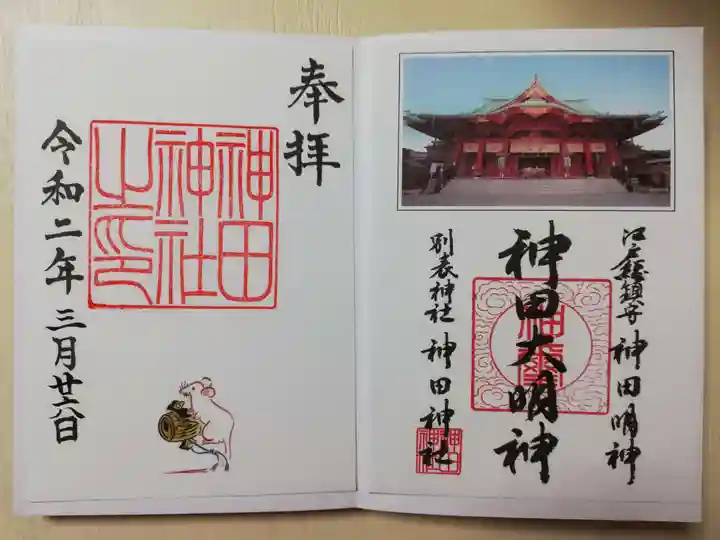 江戸總鎮守 神田明神
神田大明神
別表神社 神田神社
神田
神社
奉拝
神田
神社
之印
令和二年三月廿六日